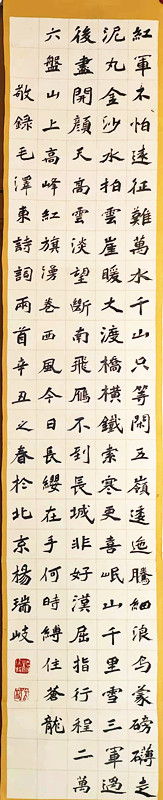 紅軍不怕遠征難萬水千山只等閒五嶺逶迤騰細浪烏蒙磅礴走
泥丸金沙水拍雲崖暖大渡橋橫鐵索寒更喜岷山千里雪三軍過
後盡開顏天高雲淡望斷南飛雁不到長城非好漢屈指行程二萬
六盤山上高峰紅旗漫卷西風今日長纓在手何時縛住蒼龍
敬録毛澤東詩詞兩首辛丑之春於北京楊瑞岐